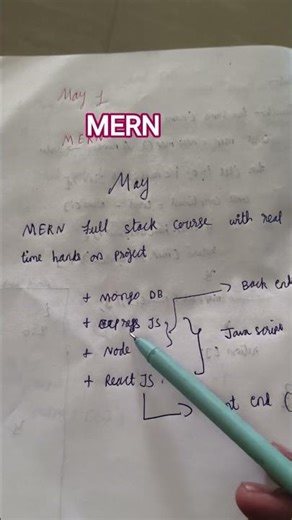 May 1
MERN
MERN
May
MERN Full stack course with real
time hands on project
+ Mongo DB
Back end
+ express JS
+ Node
Java script
+ React JS
nt end (